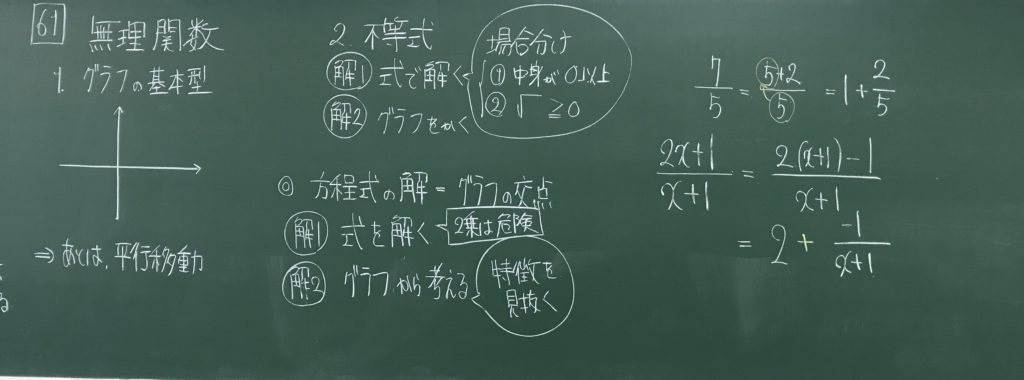 61
無理関数
1. グラフの基本型
⇒ あとは、平行移動
る
2. 不等式
解1 式で解く
解2 グラフをかく
場合分け
① 中身が0以上
② √ ≧ 0
◎ 方程式の解 = グラフの交点
解1 式を解く 2乗は危険
解2 グラフから考える
特徴を
見抜く
7/5 = (5+2)/5 = 1 + 2/5
(2x+1)/(x+1) = (2(x+1)-1)/(x+1)
= 2 + -1/(x+1)